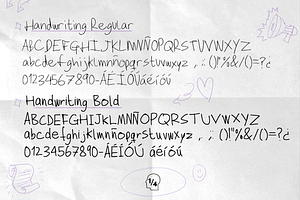 Handwriting Regular
ABCDEFGHIJKLMNÑOPQRSTUVWXYZ
abcdefghijklmnñopqrstuvwxyz , .; ()!"%&/()=?¿
01234567890-ÁÉÍÓÚáéíóú
Handwriting Bold
ABCDEFGHIJKLMNÑOPQRSTUVWXYZ
abcdefghijklmnñopqrstuvwxyz , .; ()!"%&/()=?¿
01234567890-ÁÉÍÓÚ áéíóú